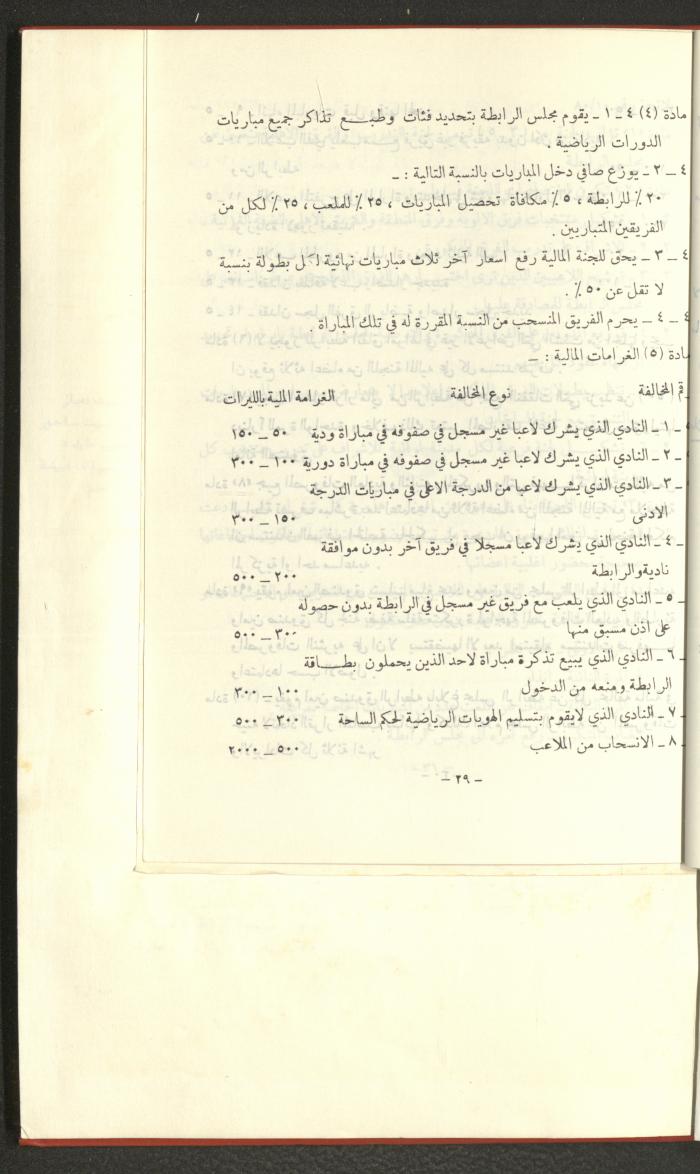 مادة (٤) ٤ ـ ١ ـ يقوم مجلس الرابطة بتحديد فئات وطبـــع تذاكر جميع مباريات
الدورات الرياضية .
٤ ــ ٢ ـ يوزع صافي دخل المباريات بالنسبة التالية : ـ
٢٠ ٪ للرابطة ، ٥ ٪ مكافاة تحصيل المباريات ، ٢٥ ٪ للملعب ، ٢٥ ٪ لكل من
الفريقين المتباريين .
٤ ــ ٣ ـ يحق للجنة المالية رفع اسعار آخر ثلاث مباريات نهائية لكل بطولة بنسبة
لا تقل عن ٥٠ ٪ .
٤ ــ ٤ ـ يحرم الفريق المنسحب من النسبة المقررة له في تلك المباراة .
مادة (٥) الغرامات المالية : ـ
قم المخالفة نوع المخالفة الغرامة المالية بالليرات
ـ ١ ـ النادي الذي يشرك لاعبا غير مسجل في صفوفه في مباراة ودية ٥٠ ــ ١٥٠
ـ ٢ ـ النادي الذي يشرك لاعبا غير مسجل في صفوفه في مباراة دورية ١٠٠ ــ ٣٠٠
ـ ٣ ـ النادي الذي يشرك لاعبا من الدرجة الاعلى في مباريات الدرجة
الادنى ١٥٠ ــ ٣٠٠
ـ ٤ ـ النادي الذي يشرك لاعبا مسجلا في فريق آخر بدون موافقة
نادية والرابطة ٢٠٠ ــ ٥٠٠
ـ ٥ ـ النادي الذي يلعب مع فريق غير مسجل في الرابطة بدون حصوله
على اذن مسبق منها ٣٠٠ ــ ٥٠٠
ـ ٦ ـ النادي الذي يبيع تذكرة مباراة لاحد الذين يحملون بطـــاقة
الرابطة ومنعه من الدخول ١٠٠ ــ ٣٠٠
ـ ٧ ـ النادي الذي لايقوم بتسليم الهويات الرياضية لحكم الساحة ٣٠٠ ــ ٥٠٠
ـ ٨ ـ الانسحاب من الملاعب ٥٠٠ ــ ٢٠٠٠
ـ ٢٩ ـ